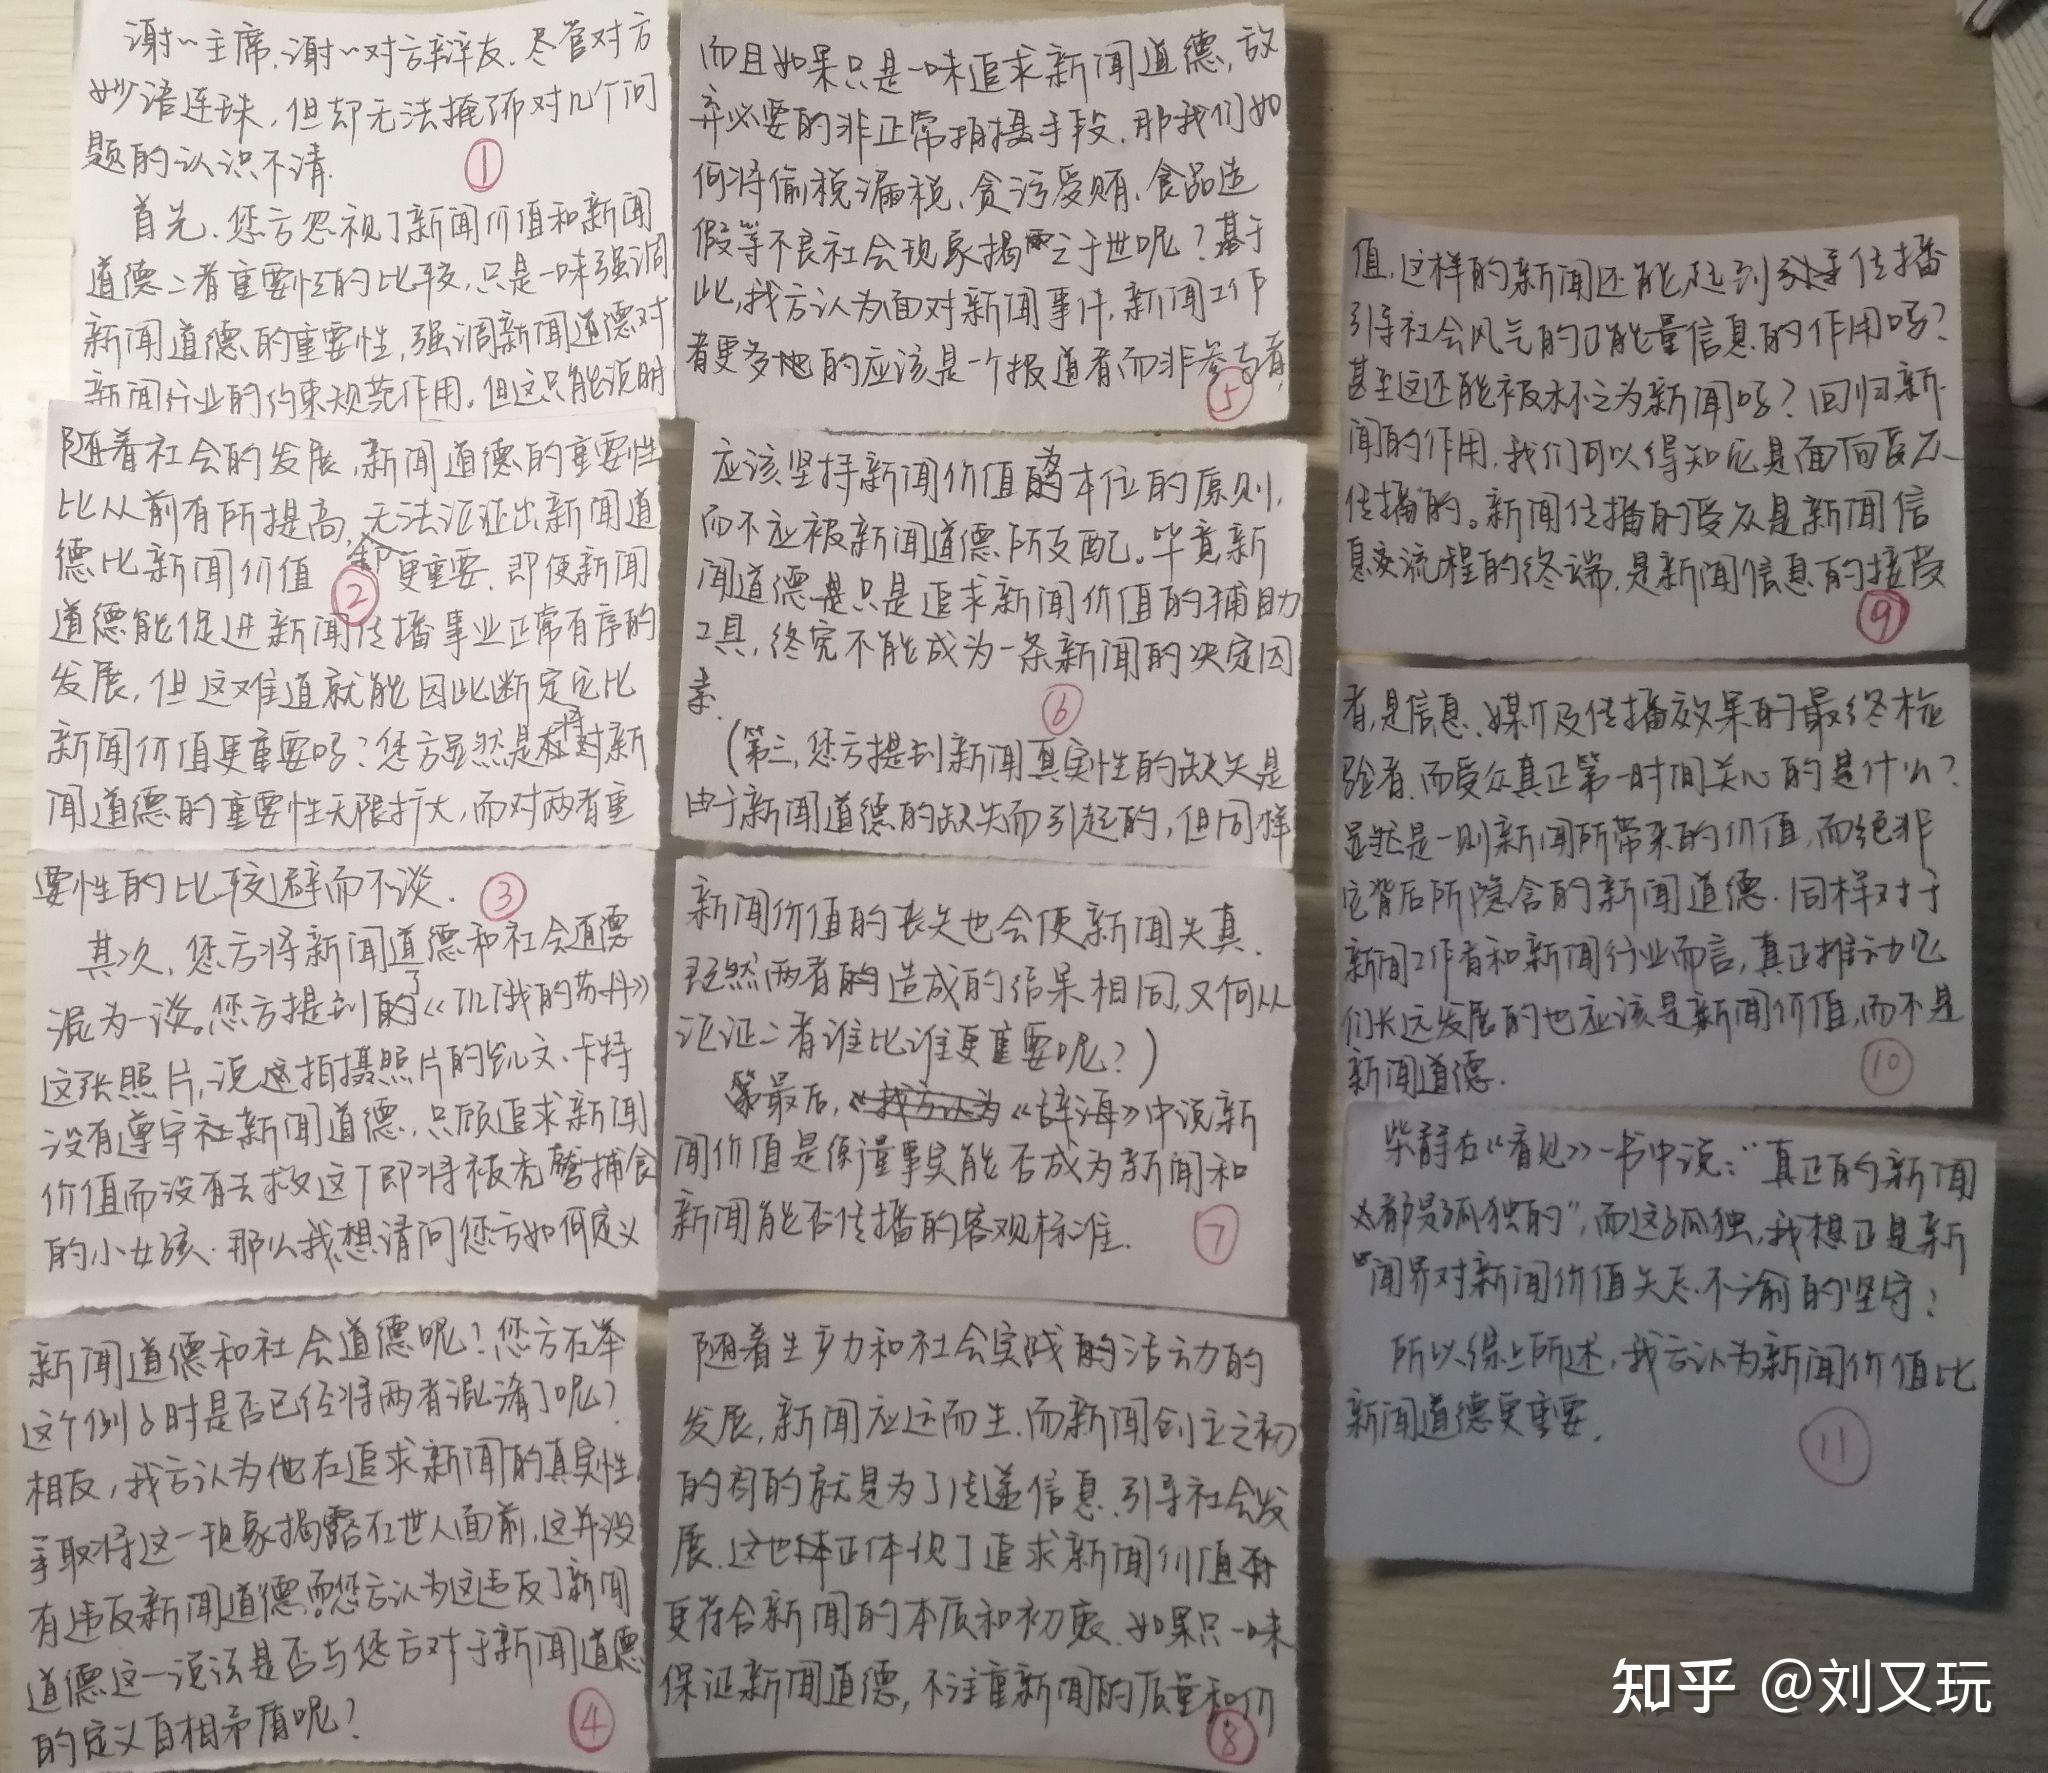 谢〃主席,谢〃对方辩友.尽管对方
妙语连珠,但却无法掩饰对几个问
题的认识不清.
①
首先.您方忽视了新闻价值和新闻
道德二者重要性的比较,只是一味强调
新闻道德的重要性,强调新闻道德对
新闻行业的约束规范作用.但这只能说明
随着社会的发展,新闻道德的重要性
比从前有所提高,无法论证出新闻道
德比新闻价值 更重要.即使新闻
②
道德能促进新闻传播事业正常有序的
发展,但这难道就能因此断定它比
新闻价值更重要吗?您方显然是将对新
闻道德的重要性无限扩大,而对两者重
要性的比较避而不谈.
③
其次,您方将新闻道德和社会道德
混为一谈。您方提到了《饥饿的苏丹》
这张照片,说这拍摄照片的凯文·卡特
没有遵守社新闻道德,只顾追求新闻
价值而没有去救这个即将被秃鹫捕食
的小女孩.那么我想请问您方如何定义
新闻道德和社会道德呢?您方在举
这个例子时是否已经将两者混淆了呢?
相反,我方认为他在追求新闻的真实性,
争取将这一现象揭露在世人面前,这并没
有违反新闻道德。而您方认为这违反了新闻
道德这一说法是否与您方对于新闻道德
的定义自相矛盾呢?
④
而且如果只是一味追求新闻道德,放
弃必要的非正常拍摄手段.那我们如
何将偷税漏税、贪污受贿、食品造
假等不良社会现象揭露之于世呢?基于
此,我方认为面对新闻事件,新闻工作
者更多地的应该是一个报道者而非参与者,
⑤
应该坚持新闻价值为本位的原则,
而不应被新闻道德所支配。毕竟新
闻道德是只是追求新闻价值的辅助
工具,终究不能成为一条新闻的决定因
素.
⑥
(第三,您方提到新闻真实性的缺失是
由于新闻道德的缺失而引起的,但同样
新闻价值的丧失也会使新闻失真.
既然两者的造成的结果相同,又何从
论证二者谁比谁更重要呢?)
第最后,《我方认为《辞海》中说新
闻价值是衡量事实能否成为新闻和
新闻能否传播的客观标准.
⑦
随着生产力和社会实践的活动力的
发展,新闻应运而生.而新闻创立之初
的目的就是为了传递信息、引导社会发
展.这也体正体现了追求新闻价值
更符合新闻的本质和初衷.如果只一味
保证新闻道德,不注重新闻的质量和价
⑧
值,这样的新闻还能起到传播
引导社会风气的正能量信息的作用吗?
甚至这还能被称之为新闻吗?回归新
闻的作用,我们可以得知它是面向受众
传播的。新闻传播的受众是新闻信
息交流程的终端,是新闻信息的接受
⑨
者,是信息、媒介及传播效果的最终检
验者.而受众真正第一时间关心的是什么?
显然是一则新闻所带来的价值,而绝非
它背后所隐含的新闻道德.同样对于
新闻工作者和新闻行业而言,真正推动它
们长远发展的也应该是新闻价值,而不是
新闻道德.
⑩
柴静在《看见》一书中说:“真正的新闻
都是孤独的”,而这孤独,我想正是新
闻界对新闻价值矢志不渝的坚守;
所以综上所述,我方认为新闻价值比
新闻道德更重要.
⑪
知乎 @刘又玩